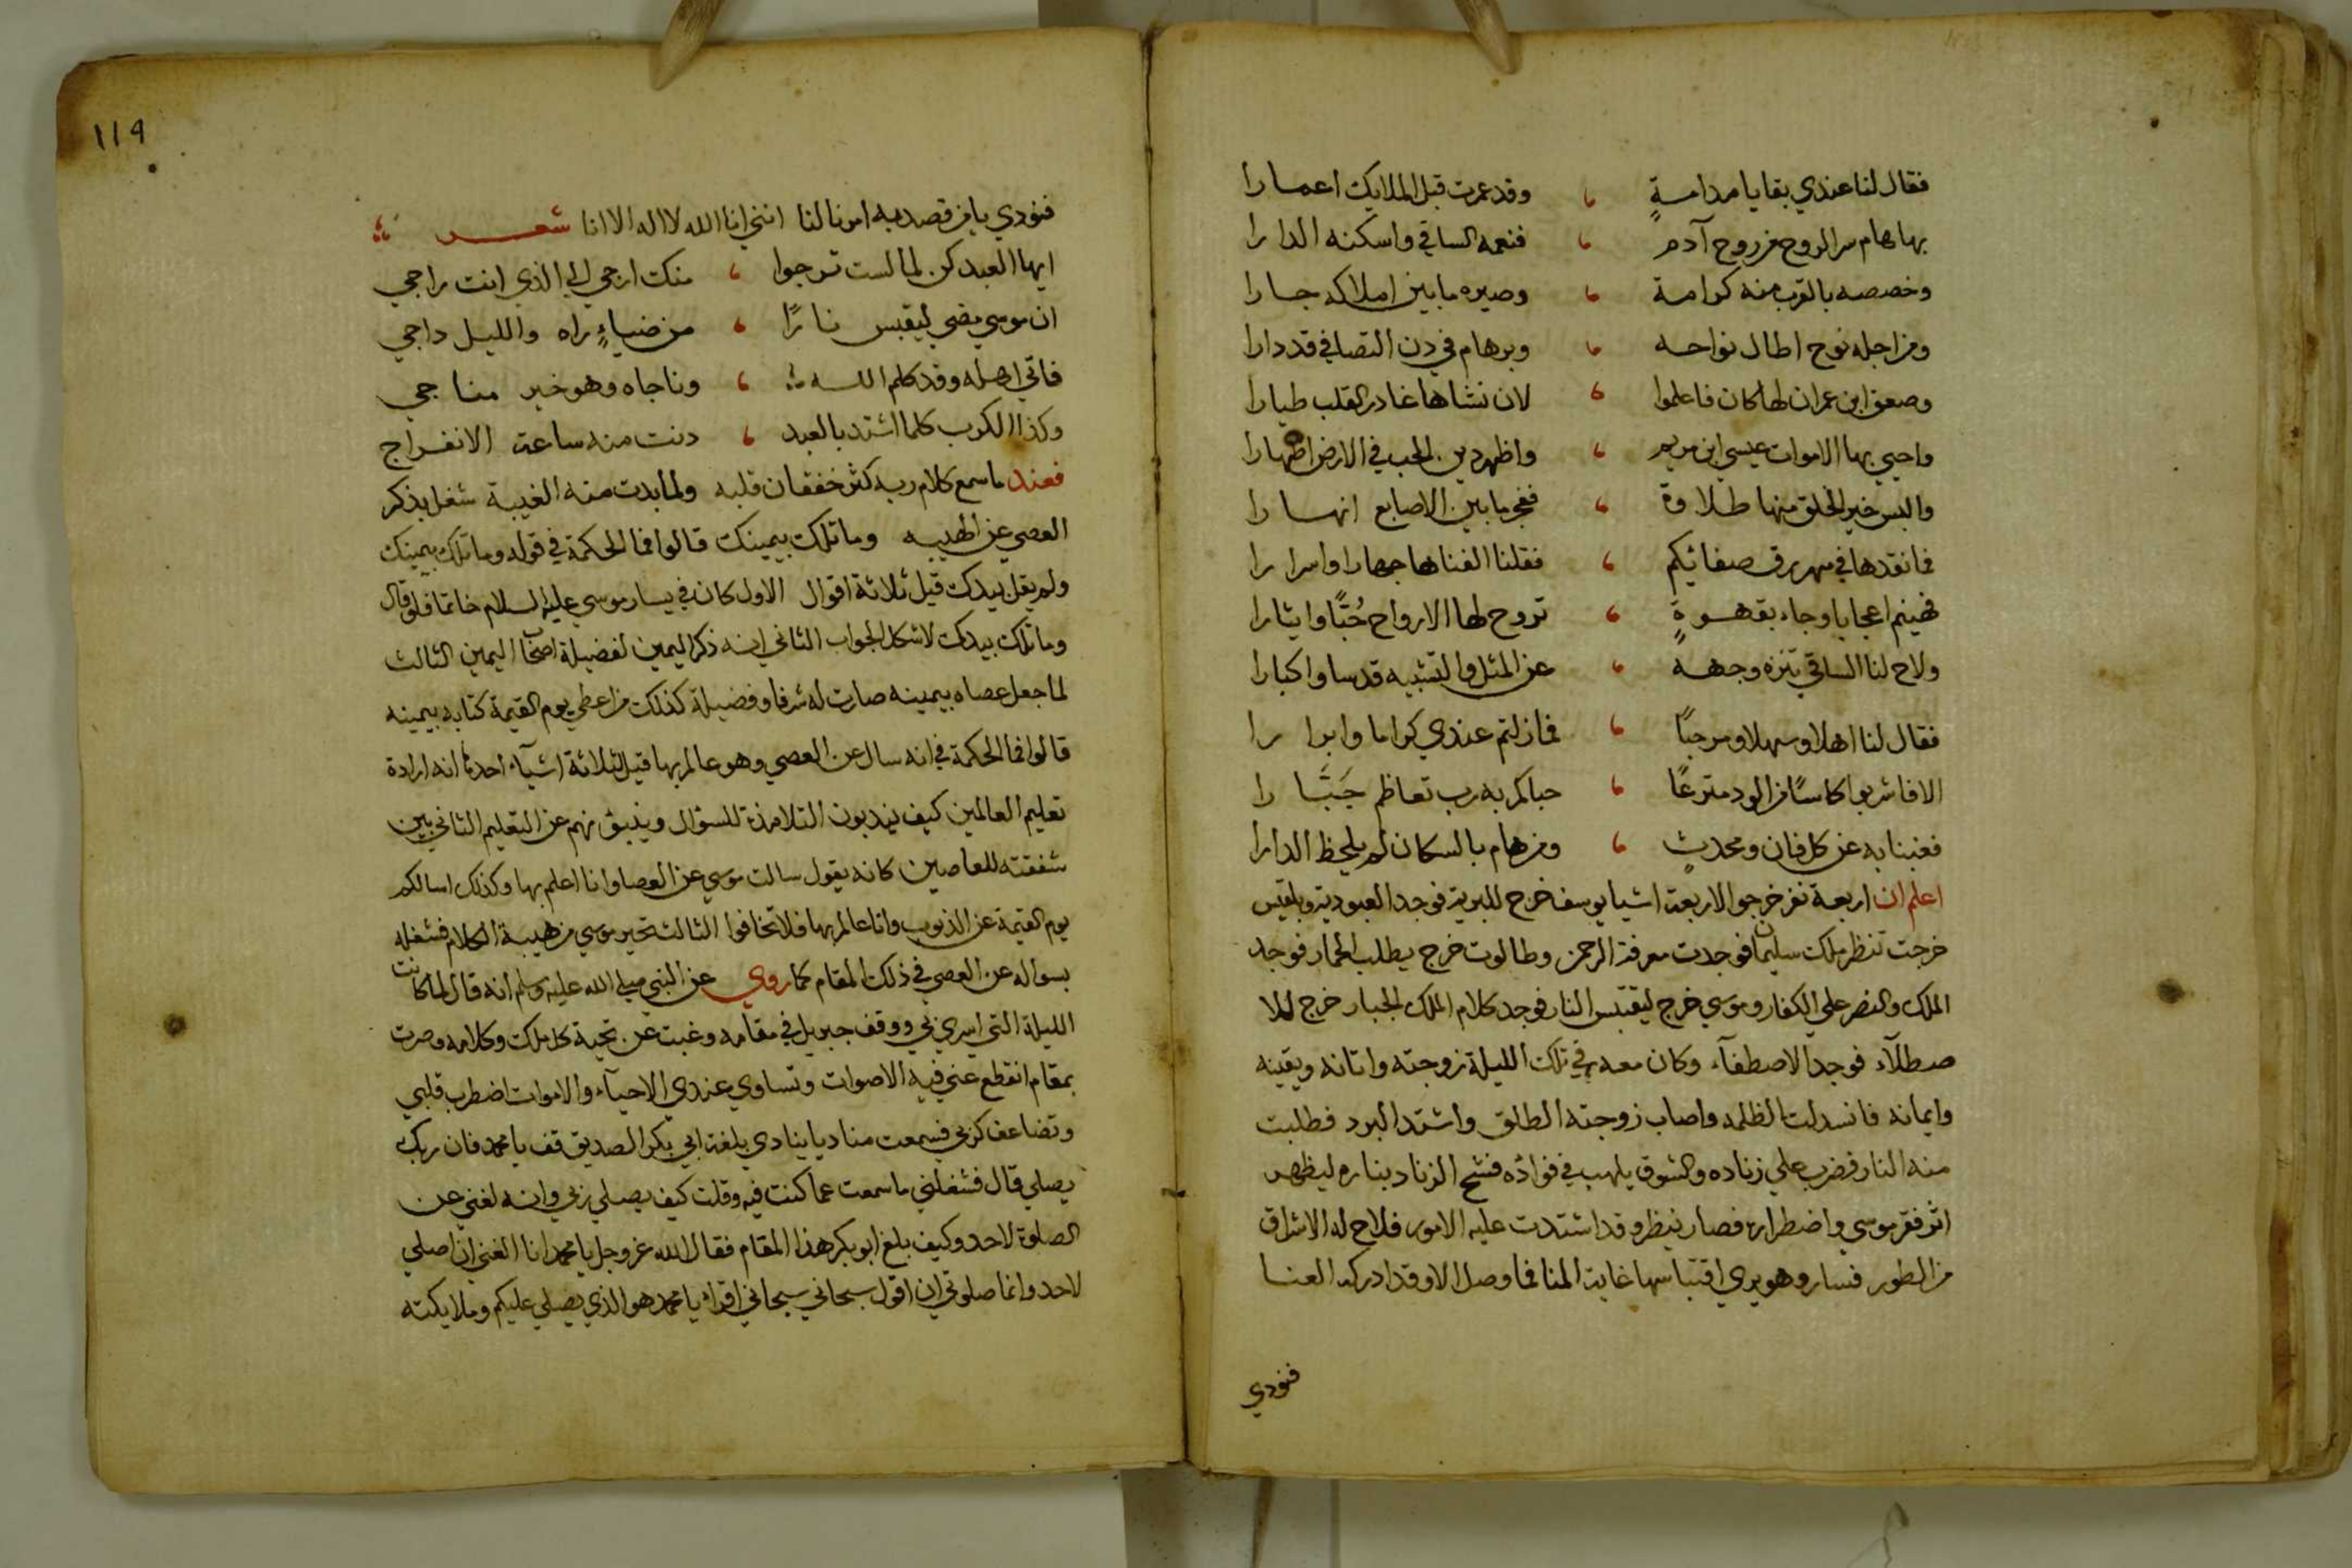 فقال لنا عندي بقايا مدامةٍ ، وقد عمرت قبل الملايك اعمارا
بها هام سر الروح من روح آدم ، فنعمه الساقي واسكنه الدارا
وخصصه بالقرب منه كرامة ، وصيره ما بين املاكه جارا
ومن اجله نوح اطال نواحه ، وبرهام في دن التصافي قد دارا
وصعق ابن عمران لها كان فاعلموا ، لان نشاها غادر القلب طيارا
واحيي بها الاموات عيسي ابن مريم ، واظهر دين الحب في الارض اظهارا
والبس خير الخلق منها طلاوة ، ففجر ما بين الاصابع انهارا
فانقدها في مهر رق صفائكم ، فقلنا الفناها جهارا واسرارا
فهينم اعجابا وجاء بقهوةٍ ، تروح لها الارواح حُبًّا وايثارا
ولاح لنا الساقي تنزه وجهه ، عن المثل والتشبيه قدسا واكبارا
فقال لنا اهلا وسهلا ومرحبًا ، فما زلتم عندي كراما وابرارا
الا فاشربوا كاسًا من الود مترعًا ، حباكم به رب تعاظم جَبَّارا
فغبنا به عن كل فان ومحدثٍ ، ومن هام بالسكان لم يلحظ الدارا
اعلم ان اربعة نفر خرجوا لاربعة اشيا يوسف خرج للبرية فوجد العبودية وبلقيس
خرجت تنظر ملك سليمان فوجدت معرفة الرحمن وطالوت خرج يطلب الحمار فوجد
الملك والنصر علي الكفار وموسي خرج ليقتبس النار فوجد كلام الملك الجبار خرج للا
صطلآء فوجد الاصطفآء وكان معه في تلك الليلة زوجته واتانه ويقينه
وايمانه فانسدلت الظلمه واصاب زوجته الطلق واشتد البرد فطلبت
منه النار فضرب علي زناده والشوق يلهب في فواده فشح الزناد بناره ليظهر
اثر فقر موسي واضطراره فصار ينظر وقد اشتدت عليه الامور فلاح له الاشراق
من الطور فسار وهو يري اقتباسها غاية المنا فما وصل الا وقد ادركه العنا
فنودي
119
فنودي يا من قصد به امرنا لنا انني انا الله لا اله الا انا شعر
ايها العبد كن لما لست ترجوا ، منك ارجي الي الذي انت راجي
ان موسي مضي ليقبس نارًا ، من ضياءٍ راه والليل داجي
فاتي اهله وقد كلم الله ، وناجاه وهو خير مناجي
وكذا الكرب كلما اشتد بالعبد ، دنت منه ساعة الانفراج
فعند ما سمع كلام ربه كثر خفقان قلبه ولما بدت منه الغيبة شغل بذكر
العصي عن الهيبه وما تلك بيمينك قالوا فما الحكمة في قوله وما تلك بيمينك
ولم يقل بيدك قيل ثلاثة اقوال الاول كان في يسار موسي عليه السلام خاتما فلو قال
وما تلك بيدك لاشكل الجواب الثاني انه ذكر اليمين لفضيلة اصحاب اليمين الثالث
لما جعل عصاه بيمينه صارت له شرفا وفضيلة كذلك من اعطي يوم القيمة كتابه بيمينه
قالوا فما الحكمة في انه سال عن العصي وهو عالم بها قيل لثلاثة اشيآء احدها انه ارادة
تعليم العالمين كيف يهذبون التلامذة للسؤال وينبؤنهم عن التعليم الثاني بين
شفقته للعاصين كانه يقول سالت موسي عن العصا وانا اعلم بها وكذلك اسالكم
يوم القيمة عن الذنوب وانا عالم بها فلا تخافوا الثالث تحير موسي من هيبة الكلام فشغله
بسواله عن العصي في ذلك المقام كما روي عن النبي صلي الله عليه وسلم انه قال لما كانت
الليلة التي اسري بي ووقف جبريل في مقامه وغبت عن تحية كل ملك وكلامه وصرت
بمقام انقطع عني فيه الاصوات وتساوي عندي الاحيآء والاموات اضطرب قلبي
وتضاعف كربي فسمعت مناديا ينادي بلغة ابي بكر الصديق قف يا محمد فان ربك
يصلي قال فشغلني ما سمعت عما كنت فيه وقلت كيف يصلي ربي وانه لغني عن
الصلوة لاحد وكيف بلغ ابو بكر هذا المقام فقال الله عز وجل يا محمد انا الغني ان اصلي
لاحد وانما صلوتي ان اقول سبحاني سبحاني اقراء يا محمد هو الذي يصلي عليكم وملايكته